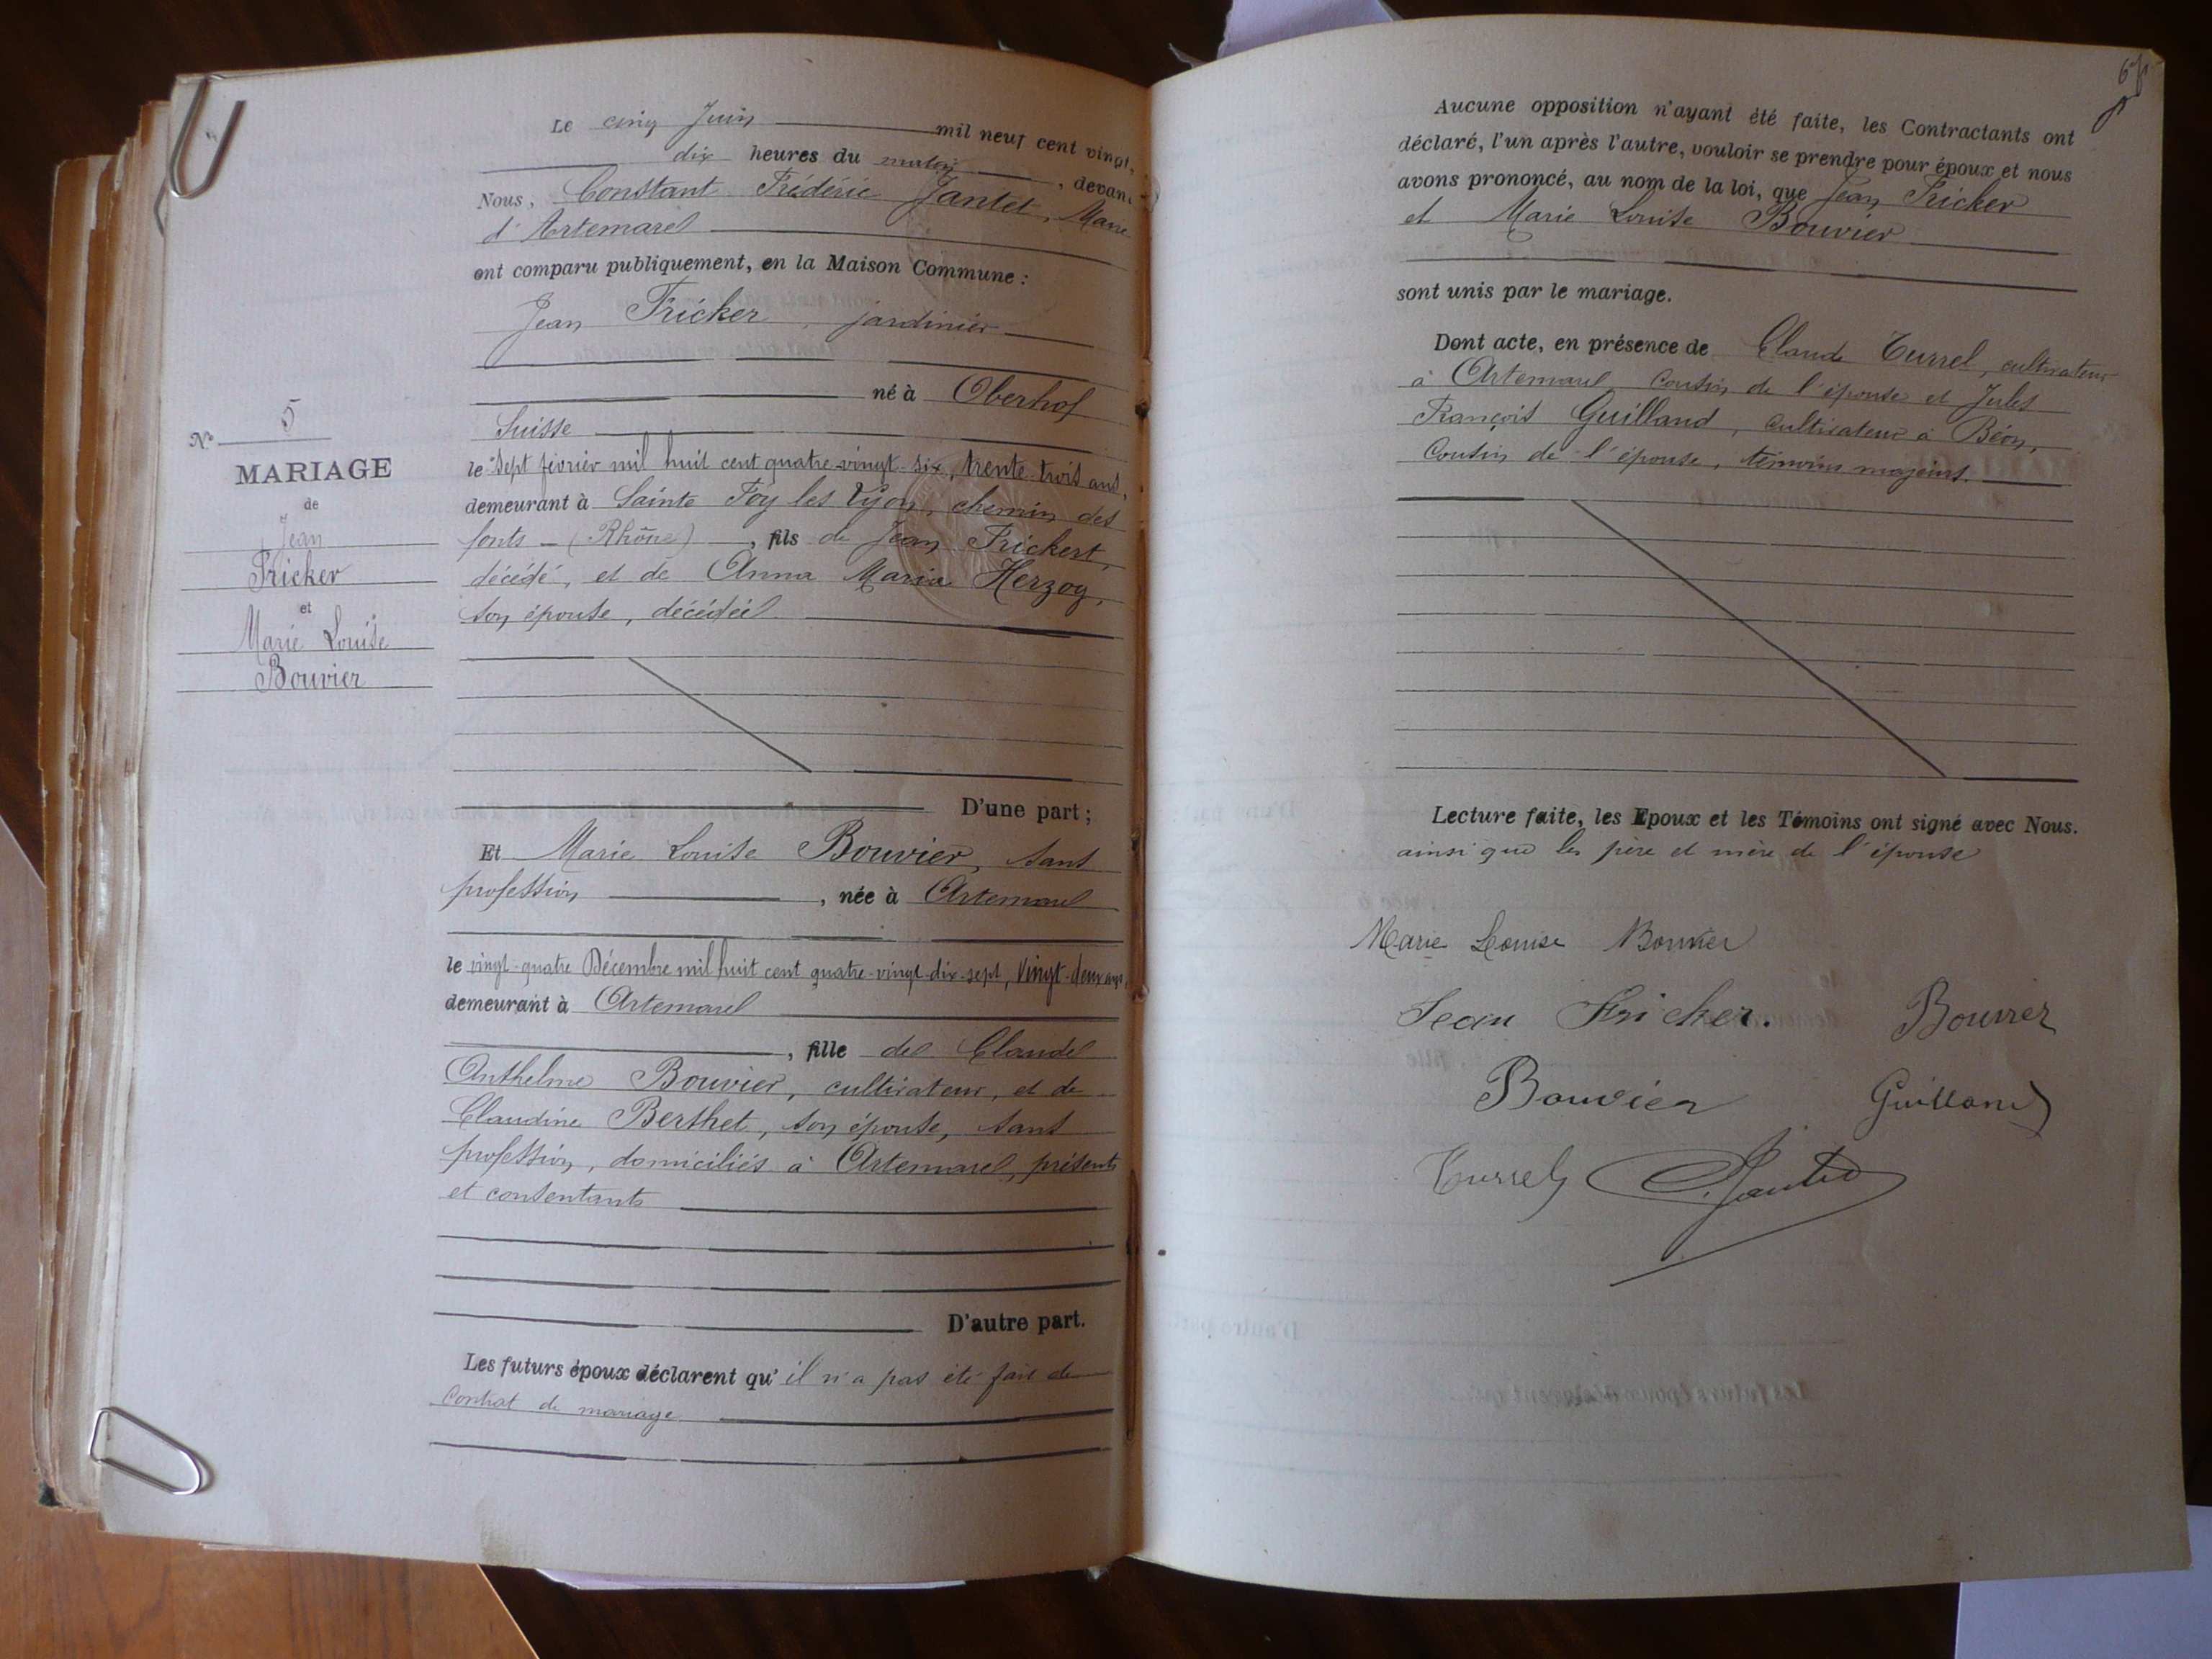 Le cinq Juin mil neuf cent vingt,
dix heures du matin, devant
Nous, Constant Frédéric Jantet, Maire
d'Artemare
ont comparu publiquement, en la Maison Commune :
Jean Fricker, jardinier
né à Oberhof
Suisse
le sept février mil huit cent quatre-vingt-six, trente-trois ans,
demeurant à Sainte Foy les Lyon, chemin des
fonts - (Rhône), fils de Jean Frickert,
décédé, et de Anna Maria Herzog,
son épouse, décédée
D'une part ;
N° 5
MARIAGE
de
Jean
Fricker
et
Marie Louise
Bouvier
Et Marie Louise Bouvier, sans
profession, née à Artemare
le vingt-quatre Décembre mil huit cent quatre-vingt-dix-sept, vingt-deux ans,
demeurant à Artemare
, fille de Claude
Anthelme Bouvier, cultivateur, et de
Claudine Berthet, son épouse, sans
profession, domiciliés à Artemare, présents
et consentants
D'autre part.
Les futurs époux déclarent qu'il n'a pas été fait de
contrat de mariage
Aucune opposition n'ayant été faite, les Contractants ont
déclaré, l'un après l'autre, vouloir se prendre pour époux et nous
avons prononcé, au nom de la loi, que Jean Fricker
et Marie Louise Bouvier
sont unis par le mariage.
Dont acte, en présence de Claude Turrel, cultivateur
à Artemare, cousin de l'épouse et Jules
François Guilland, cultivateur à Béon,
cousin de l'épouse, témoins majeurs.
Lecture faite, les Epoux et les Témoins ont signé avec Nous.
ainsi que les père et mère de l'épouse
Marie Louise Bouvier
Jean Fricker. Bouvier
Bouvier Guilland
Turrel C. Jantet